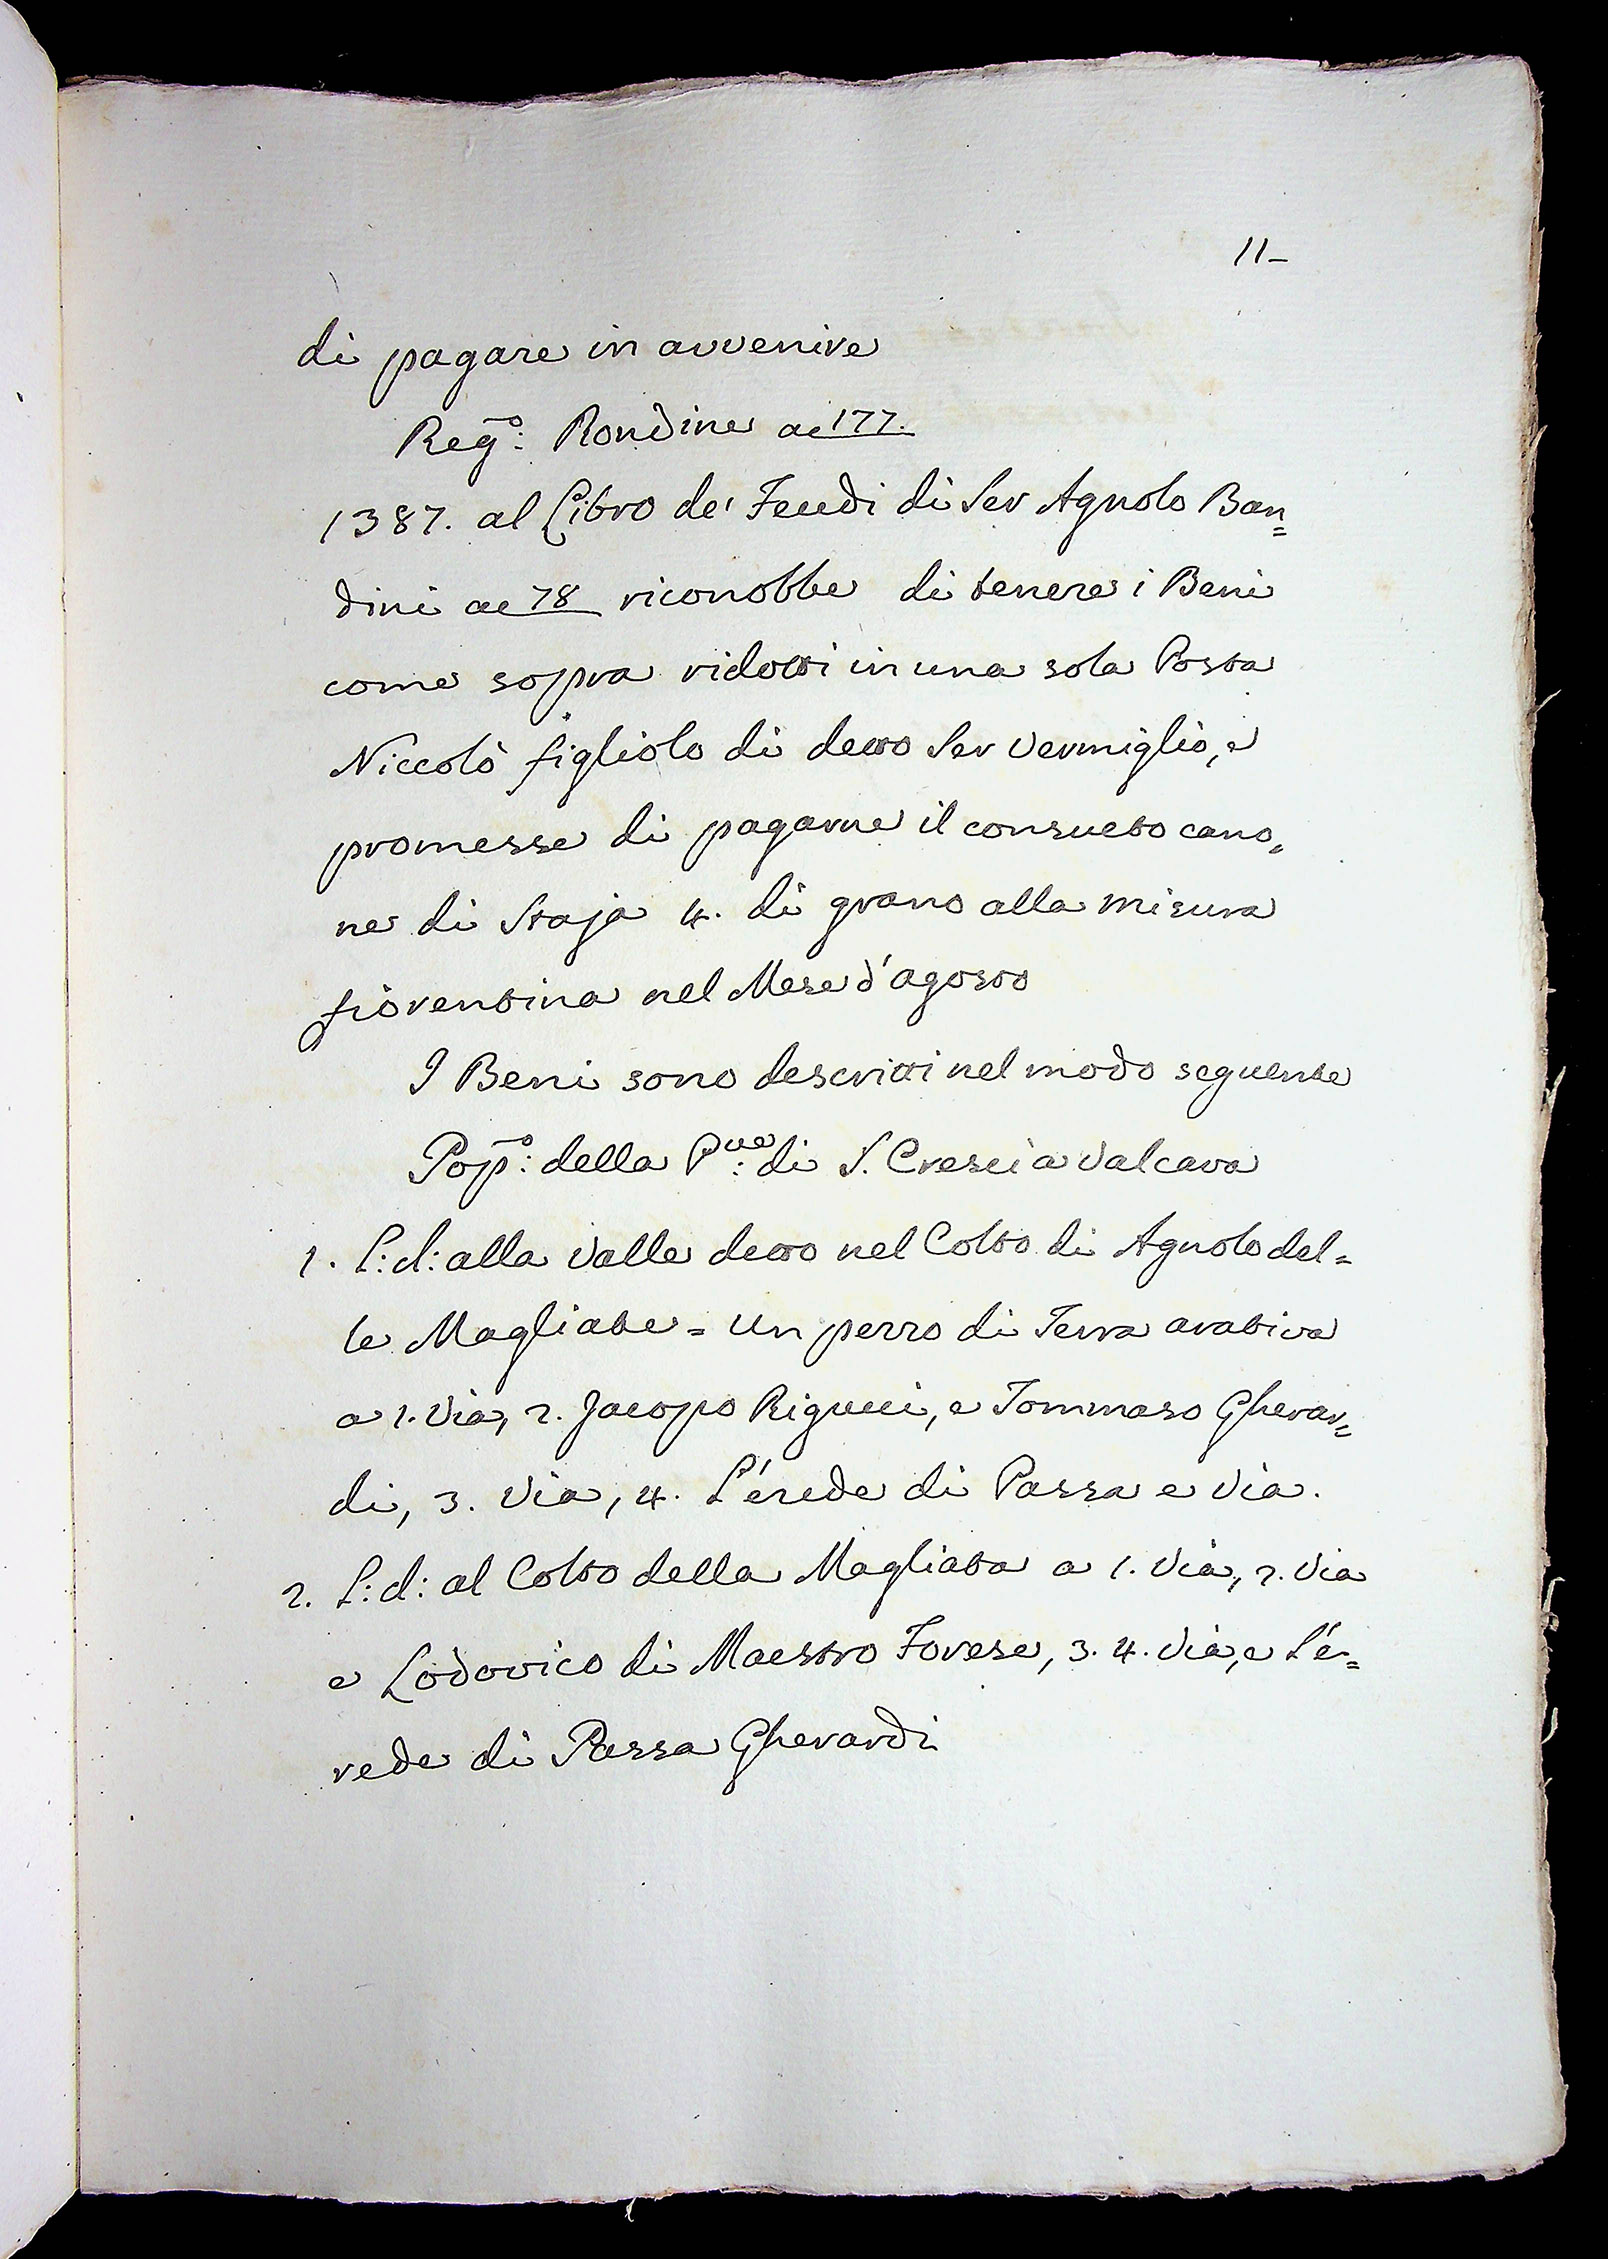 11-
di pagare in avvenire
Reg.º: Rondine ac 177.
1387. al Libro de' Feudi di Ser Agnolo Ban=
dini ac 78 riconobbe di tenere i Beni
come sopra ridotti in una sola Posta
Niccolò figliolo di detto Ser Vermiglio, e
promesse di pagarne il consueto cano=
ne di Staja 4. di grano alla misura
fiorentina nel Mese d'agosto
I Beni sono descritti nel modo seguente
Pop.º: della P.ve: di S. Cresci a Valcava
1. L: d: alla Valle detto nel Colto di Agnolo del=
le Magliate = Un pezzo di Terra arativa
a 1. Via, 2. Jacopo Rigucci, e Tommaso Gherar=
di, 3. Via, 4. L'erede di Pazza e Via.
2. L: d: al Colto della Magliata a 1. Via, 2. Via
e Lodovico di Maestro Forese, 3. 4. Via, e l'e=
rede di Pazza Gherardi